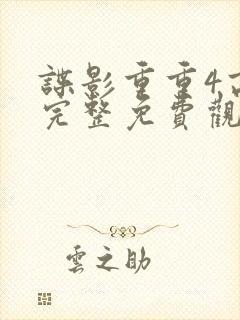 諜影重重4
完整免費觀
雲之助